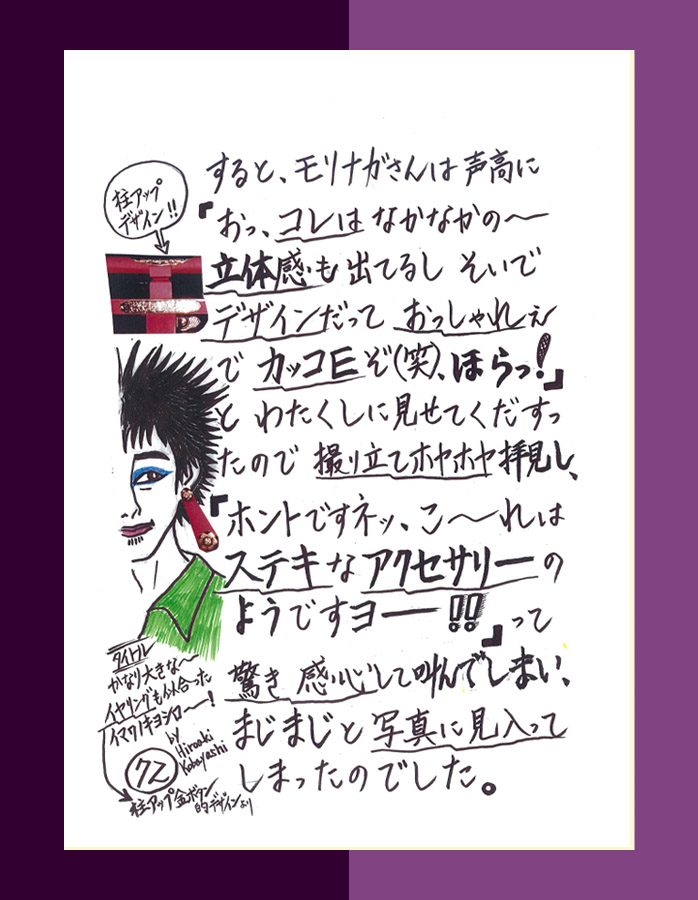 すると、モリナガさんは声高に
『おっ、コレはなかなかの〜
立体感も出てるし そいで
デザインだって おっしゃれぇ
で カッコEぞ(笑)、ほらっ!』
と わたくしに見せてくだすっ
たので 撮り立てホヤホヤ拝見し、
『ホントですネッ、こ〜れは
ステキなアクセサリーの
ようですヨー!!』って
驚き 感心して叫んでしまい、
まじまじと 写真に見入って
しまったのでした。
柱アップ
デザイン!!
タイトル
かなり大きな〜
イヤリングも似合った
イマワノキヨシロー!
by
Hiroaki
Kobayashi
柱アップ金ボタン
的デザインより